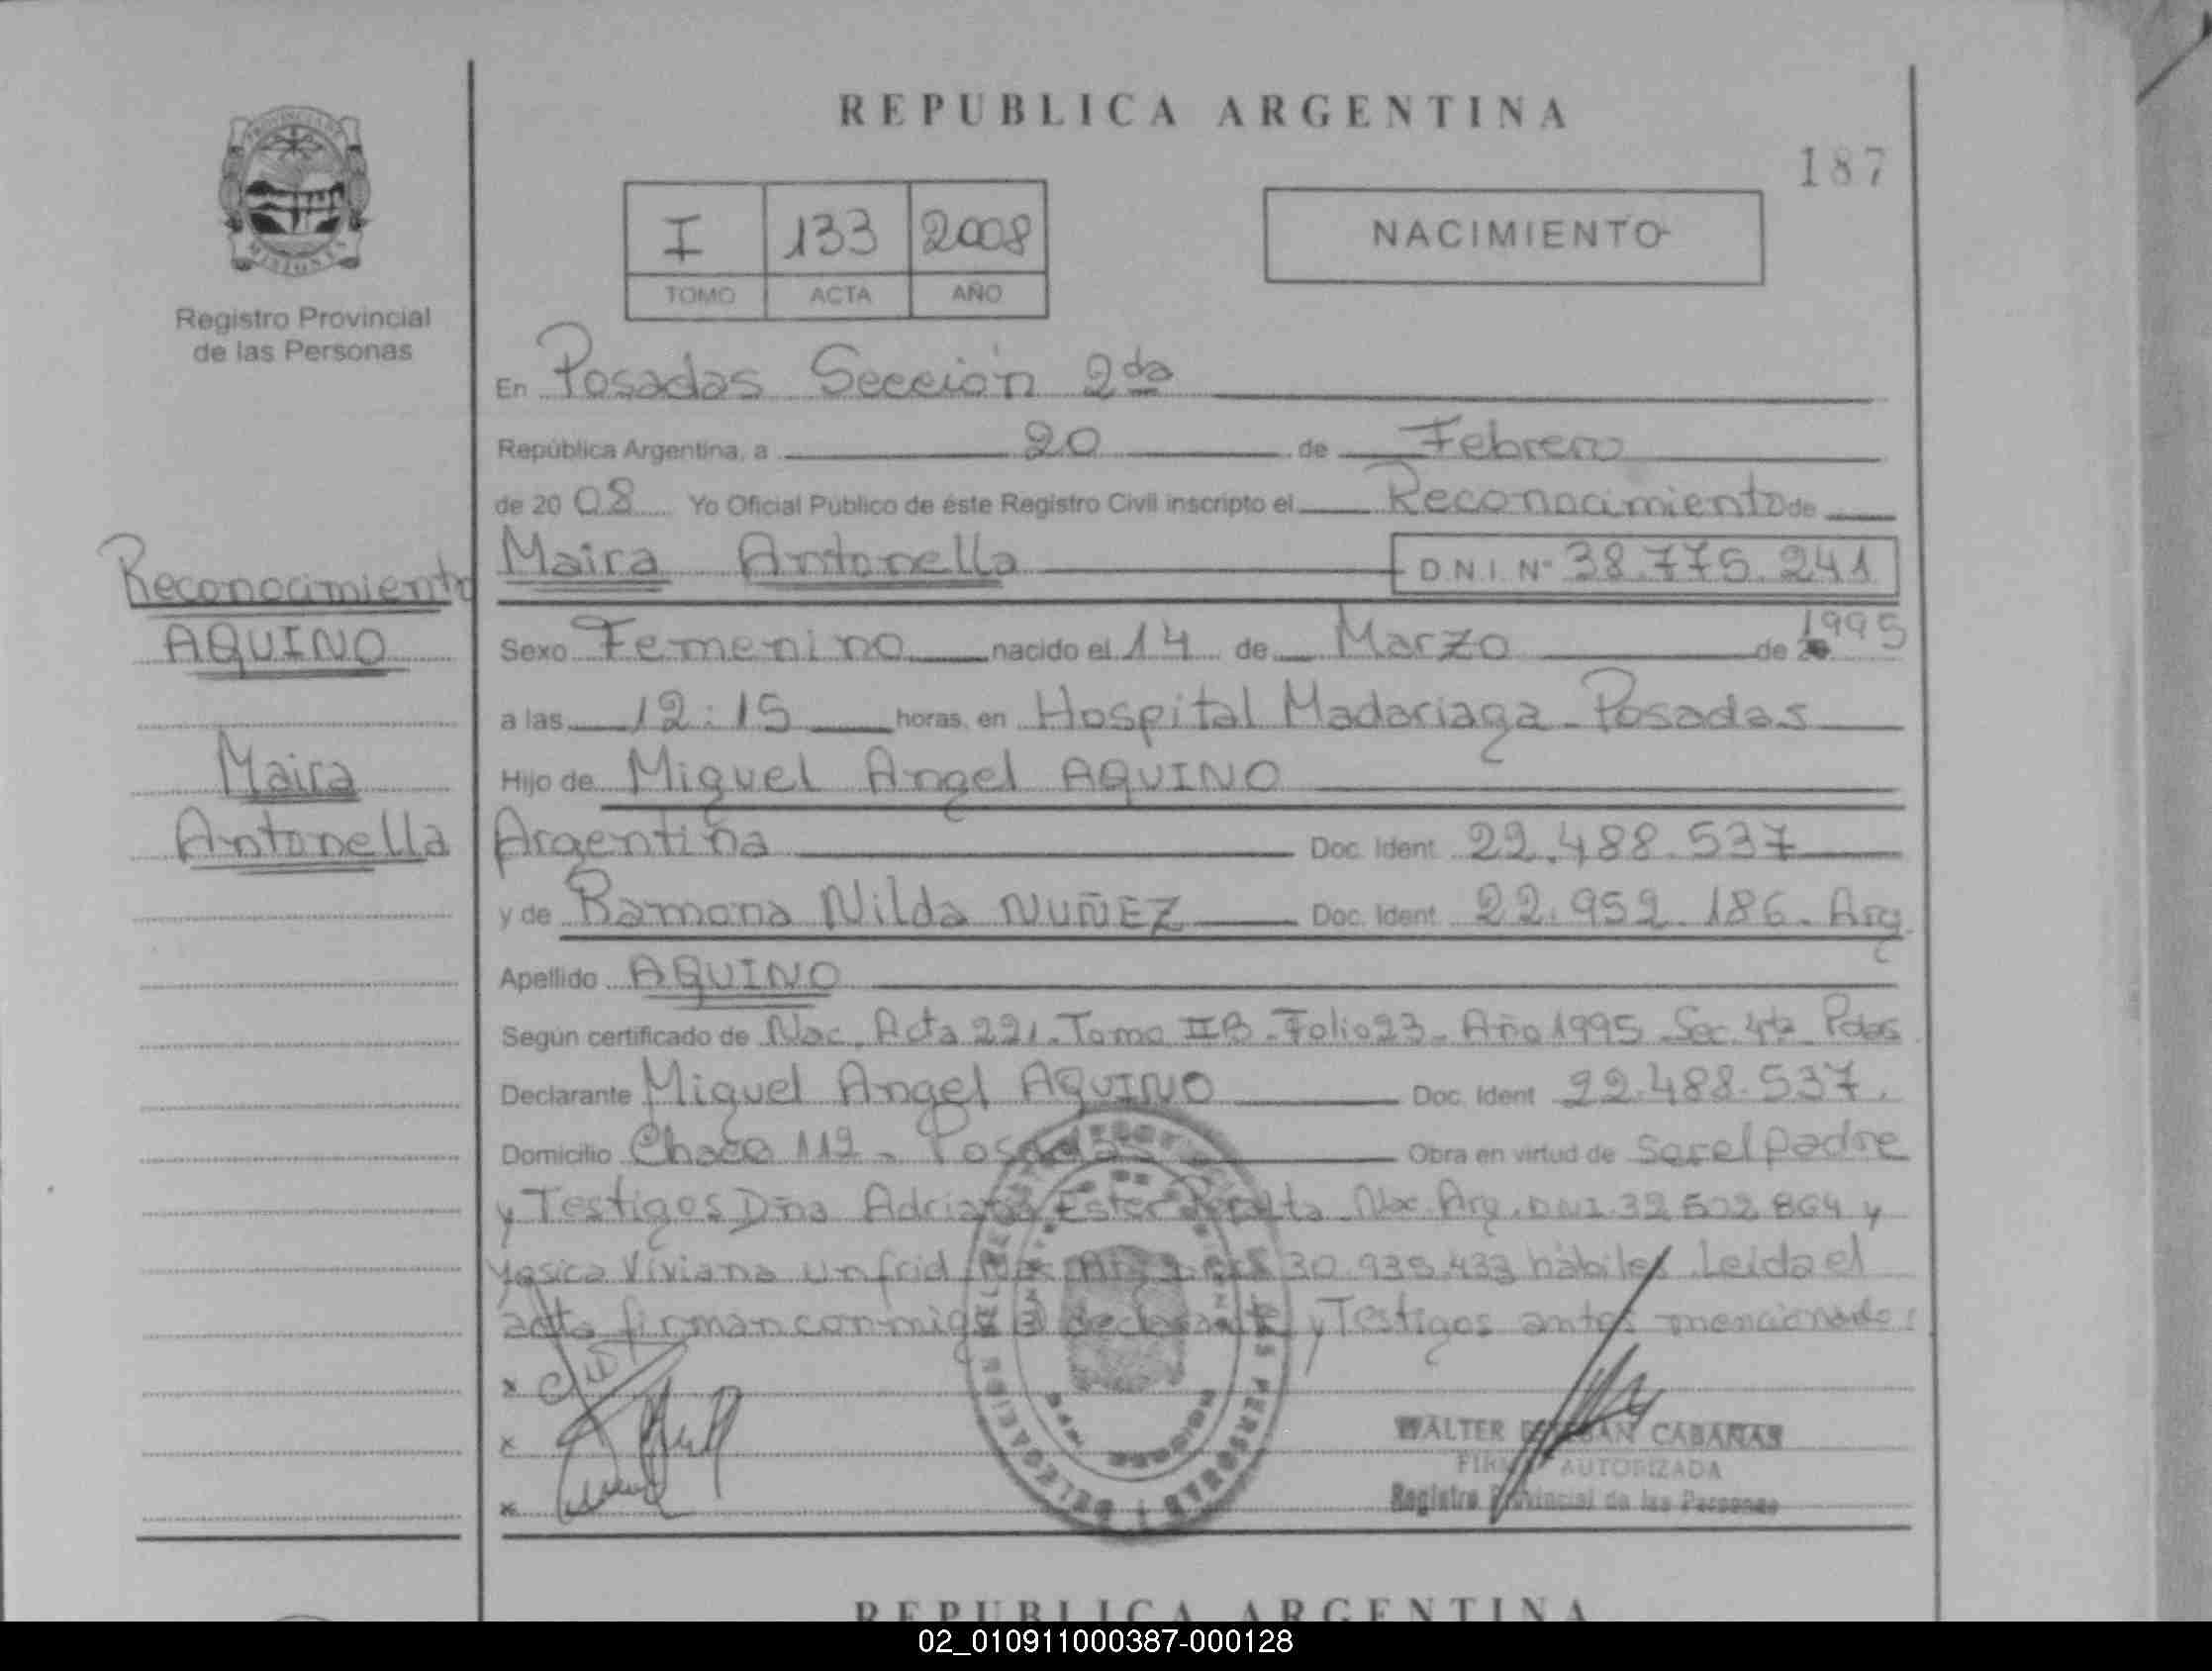 REPUBLICA ARGENTINA
187
PROVINCIA DE
MISIONES
Registro Provincial
de las Personas
I 133 2008
TOMO ACTA AÑO
NACIMIENTO-
En Posadas Sección 2da
República Argentina, a 20 de Febrero
de 2008 Yo Oficial Público de éste Registro Civil inscripto el Reconocimiento de
Maira Antonella D.N.I. Nº 38.775.241
Sexo Femenino nacido el 14 de Marzo de 1995
a las 12:15 horas, en Hospital Madariaga - Posadas
Hijo de Miguel Angel AQUINO
Argentina Doc. Ident. 22.488.537
y de Ramona Nilda NUÑEZ Doc. Ident. 22.952.186 - Arg.
Apellido AQUINO
Según certificado de Nac. Acta 221 - Tomo II B - Folio 23 - Año 1995 - Sec. 4ta Pdas
Declarante Miguel Angel AQUINO Doc. Ident. 22.488.537.
Domicilio Chaco 112 - Posadas Obra en virtud de ser el padre
y Testigos Dña Adriana Ester Peralta Nac. Arg. DNI 32.502.864 y
Yesica Viviana Unfrid Nac Arg 30.935.433 hábiles Leida el
acta firman conmigo el declarante y Testigos antes mencionados
Reconocimiento
AQUINO
Maira
Antonella
WALTER ESTEBAN CABAÑAS
FIRMA AUTORIZADA
Registro Provincial de las Personas
REPUBLICA ARGENTINA
02_010911000387-000128